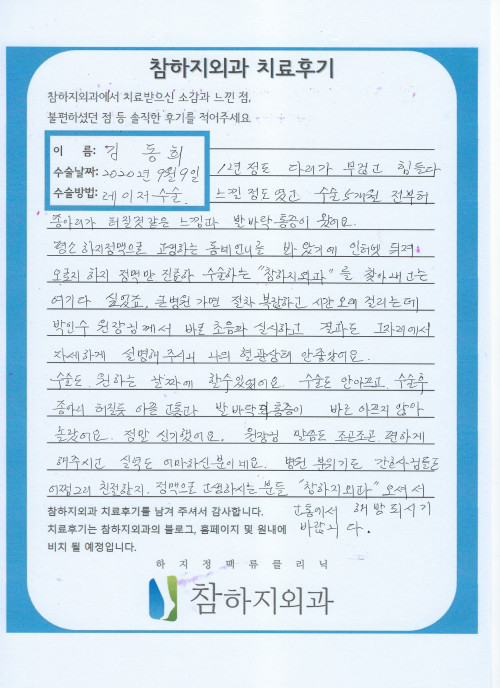 참하지외과 치료후기
참하지외과에서 치료받으신 소감과 느낀 점,
불편하셨던 점 등 솔직한 후기를 적어주세요
이 름: 김 동희
수술날짜: 2020년 9월 9일
수술방법: 레이저 수술
12년 정도 다리가 무겁고 힘들다
느낀 정도 였고 수술 5개월 전부터
종아리가 터질것같은 느낌과 발바닥 통증이 왔어요.
평소 하지정맥으로 고생하는 동네언니를 봐 왔기에 인터넷 뒤져
오로지 하지 정맥만 진료하 수술하는 "참하지외과"를 찾아내고는
여기다 싶었죠. 큰병원 가면 절차 복잡하고 시간 오래 걸리는데
박인수 원장님께서 바로 초음파 실시하고 결과도 그자리에서
자세하게 설명해 주셔서 나의 혈관상태 안좋았어요.
수술도 원하는 날짜에 할수있었어요. 수술도 안아프고, 수술후
종아리 터질듯 아픈 고통과 발바닥 통증이 바로 아프지 않아
놀랐어요. 정말 신기했어요. 원장님 말씀도 조곤조곤 편하게
해주시고 실력도 어마하신분이네요. 병원 분위기도 간호사님들도
어쩜그리 친절한지. 정맥으로 고생하시는 분들 "참하지외과" 오셔서
고통에서 해방되시기
바랍니다.
참하지외과 치료후기를 남겨 주셔서 감사합니다.
치료후기는 참하지외과의 블로그, 홈페이지 및 원내에
비치 될 예정입니다.
하지정맥류클리닉
참하지외과